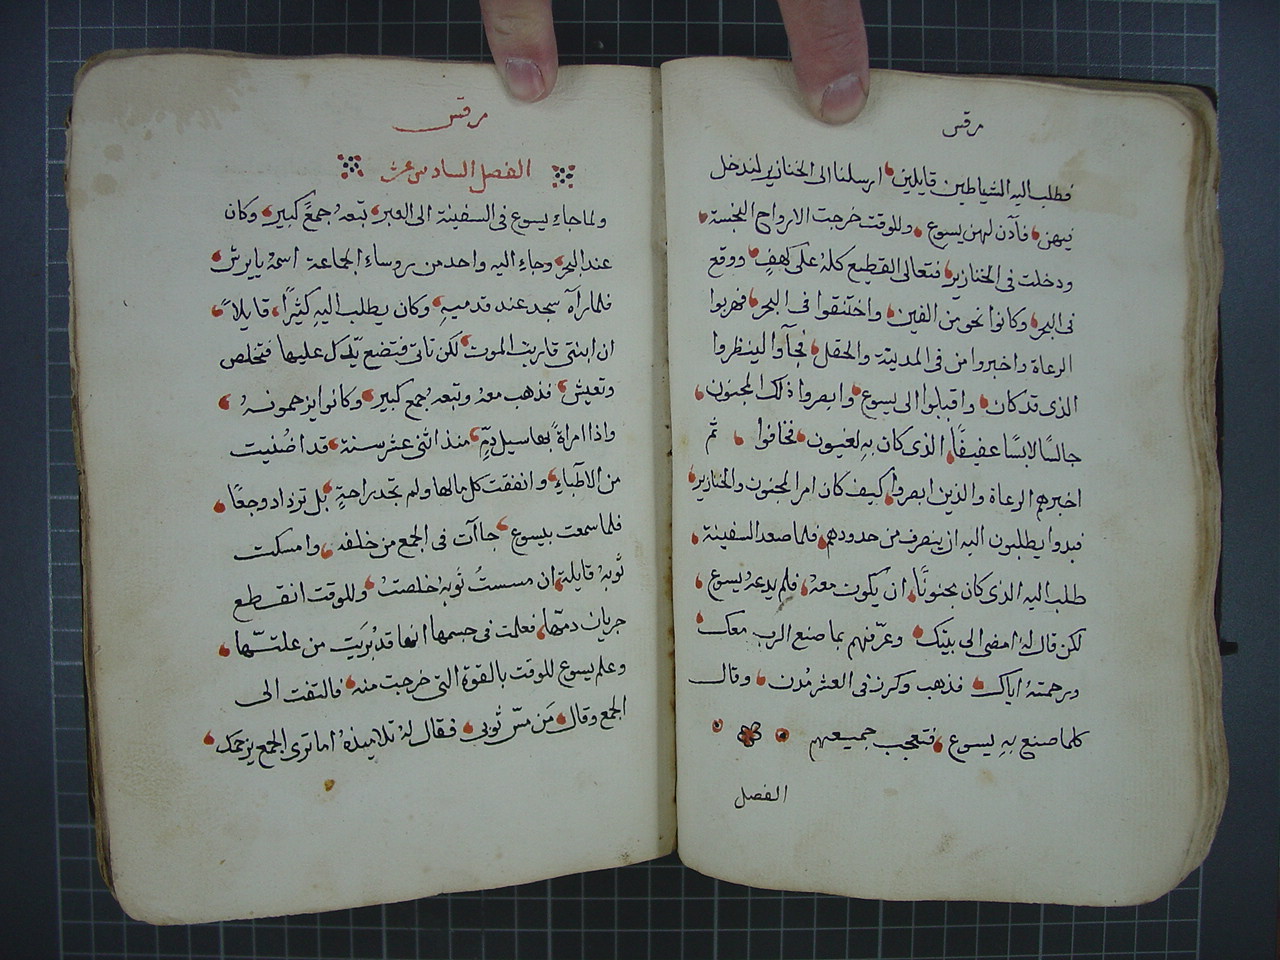 مرقس
فطلب اليه الشياطين قايلين ارسلنا الى الخنازير لندخل
فيهن فآذن لهن يسوع وللوقت خرجت الارواح النجسة
ودخلت فى الخنازير فتعالى القطيع كله على كهفٍ ووقع
فى البحر وكانوا نحو من الفين واختنقوا فى البحر فهربوا
الرعاة واخبروا من فى المدينة والحقل فجآوا لينظروا
الذى قد كان واقبلوا الى يسوع وابصروا ذلك المجنون
جالسًا لابسًا عفيفًا الذى كان بهِ لغيون فخافوا ثم
اخبرهم الرعاة والذين ابصروا كيف كان امر المجنون والخنازير
فبدوا يطلبون اليه ان ينصرف من حدودهم فلما صعد السفينة
طلب اليه الذى كان مجنونًا ان يكون معهُ فلم يدعهُ يسوع
لكن قال لهُ امضى الى بيتك وعرّفهم بما صنع الرب معك
ورحمتهُ اياك فذهب وكرز فى العشر مُدن وقال
كلما صنع بهِ يسوع فتعجب جميعهم
الفصل
مرقس
الفصل السادس عشر
ولما جاء يسوع فى السفينة الى العبر تبعهُ جمعٌ كبير وكان
عند البحر وجاء اليه واحد من روساء الجماعة اسمهُ يايرش
فلما رآه سجد عند قدميهِ وكان يطلب اليهِ كثيرًا قايلاً
ان ابنتى قاربت الموت لكن تاتى فتضع يدك عليها فتخلص
وتعيش فذهب معهُ وتبعهُ جمع كبير وكانوا يزحمونهُ
واذا امراةٌ بها سيل دمٍّ منذ اثنى عشر سنة قد اضنيت
من الاطباء وانفقت كل مالها ولم تجد راحةٍ بل تزداد وجعًا
فلما سمعت بيسوع جاآت فى الجمع من خلفه وامسكت
ثوبهُ قايلة ان مسستُ ثوبهُ خلصتُ وللوقت انقطع
جريان دمّها فعلمت فى جسمها انها قد بُريَت من علتّها
وعلم يسوع للوقت بالقوة التى خرجت منه فالتفت الى
الجمع وقال مَن مسّ ثوبى فقال لهُ تلاميذهُ اما ترى الجمع يزحمك